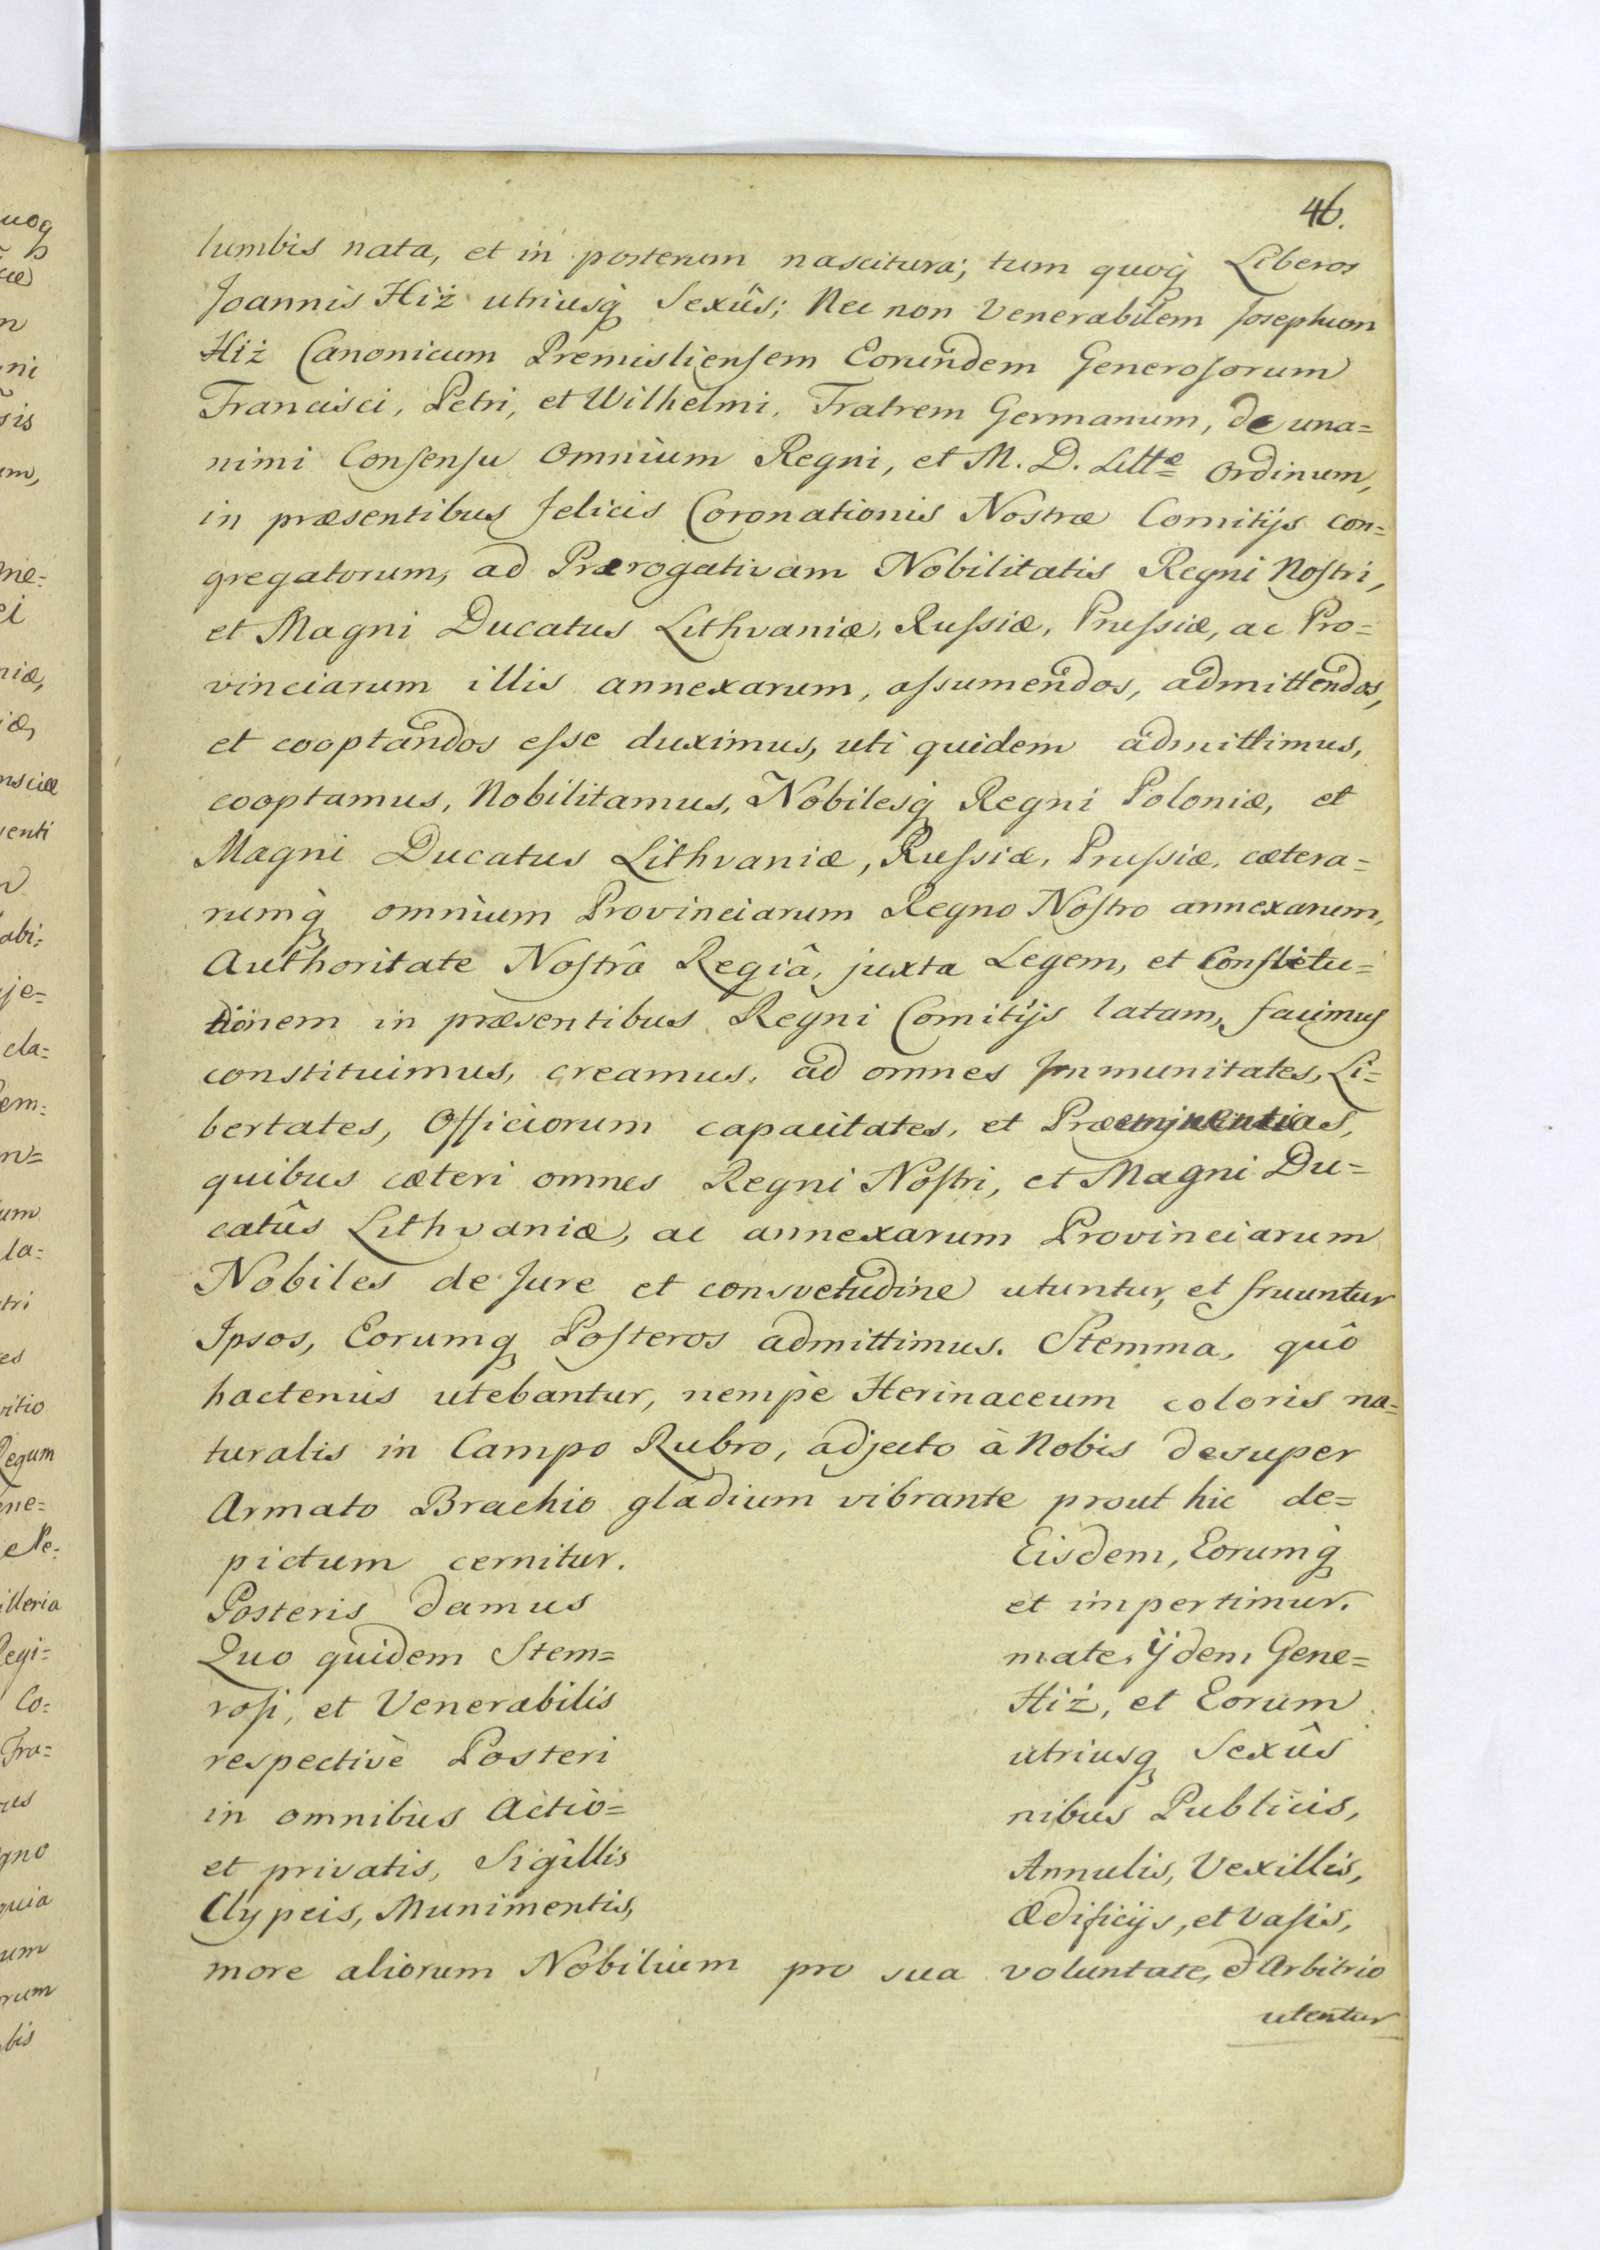 46.
lumbis nata, et in posterum nascitura; tum quoq̀ Liberos
Joannis Hiż utriusq̀ Sexûs; Nec non Venerabilem Josephum
Hiż Canonicum Premisliensem Eorundem Generosorum
Francisci, Petri, et Wilhelmi, Fratrem Germanum, de una=
nimi Consensu Omnium Regni, et M. D. Littæ Ordinum,
in præsentibus felicis Coronationis Nostræ Comitijs con=
gregatorum, ad Prærogativam Nobilitatis Regni Nostri,
et Magni Ducatus Lithvaniæ, Russiæ, Prussiæ, ac Pro=
vinciarum illis annexarum, assumendos, admittendos,
et cooptandos esse duximus, uti quidem admittimus,
cooptamus, Nobilitamus, Nobilesq̀ Regni Poloniæ, et
Magni Ducatus Lithvaniæ, Russiæ, Prussiæ, cætera=
rumq̀ omnium Provinciarum Regno Nostro annexarum,
Authoritate Nostrâ Regiâ, juxta Legem, et Constitu=
tionem in præsentibus Regni Comitijs latam, facimus
constituimus, creamus, ad omnes Immunitates, Li=
bertates, Officiorum capacitates, et Præeminentias,
quibus cæteri omnes Regni Nostri, et Magni Du=
catûs Lithvaniæ, ac annexarum Provinciarum
Nobiles de Jure et consvetudine utuntur, et fruuntur
Ipsos, Eorumq Posteros admittimus. Stemma, quô
hactenus utebantur, nempè Herinaceum coloris na=
turalis in Campo Rubro, adjecto à Nobis desuper
Armato Brachio gladium vibrante prout hic de=
pictum cernitur. Eisdem, Eorumq̀
Posteris damus et impertimur.
Quo quidem Stem= mate, ÿdem Gene=
rosi, et Venerabilis Hiż, et Eorum
respectivè Posteri utriusq Sexûs
in omnibus Actio= nibus Publicis,
et privatis, Sigillis Annulis, Vexillis,
Clypeis, Munimentis, Ædificijs, et Vasis,
more aliorum Nobilium pro sua voluntate, & Arbitrio
utentur